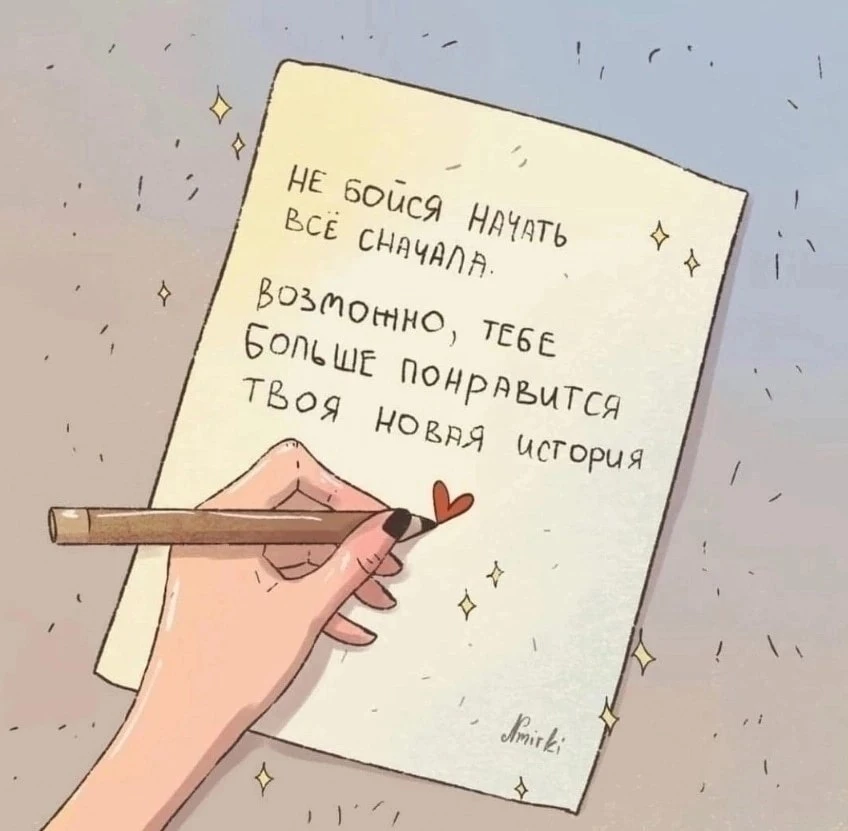 НЕ БОЙСЯ НАЧАТЬ
ВСЁ СНАЧАЛА.
ВОЗМОЖНО, ТЕБЕ
БОЛЬШЕ ПОНРАВИТСЯ
ТВОЯ НОВАЯ ИСТОРИЯ
Nmirki